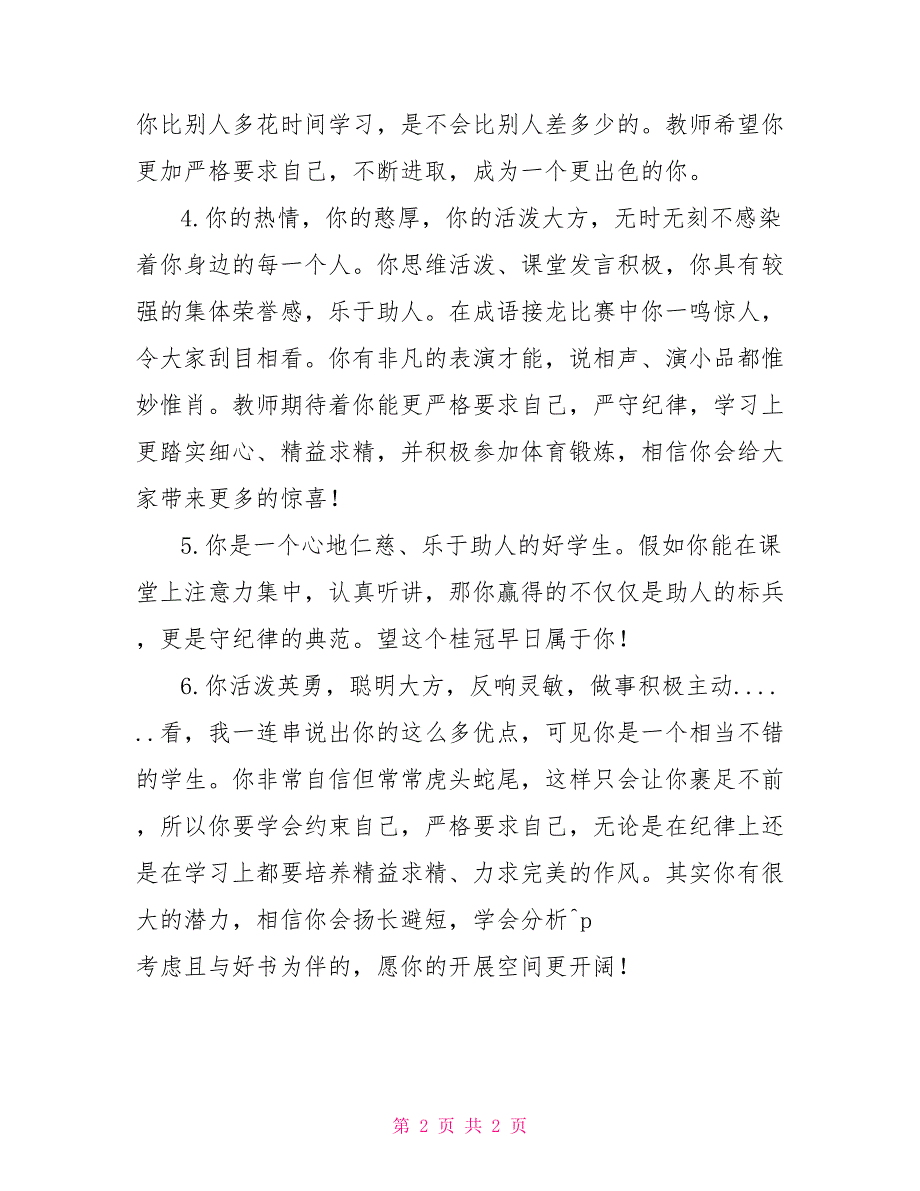 你比别人多花时间学习，是不会比别人差多少的。教师希望你
更加严格要求自己，不断进取，成为一个更出色的你。
4.你的热情，你的憨厚，你的活泼大方，无时无刻不感染
着你身边的每一个人。你思维活泼、课堂发言积极，你具有较
强的集体荣誉感，乐于助人。在成语接龙比赛中你一鸣惊人，
令大家刮目相看。你有非凡的表演才能，说相声、演小品都惟
妙惟肖。教师期待着你能更严格要求自己，严守纪律，学习上
更踏实细心、精益求精，并积极参加体育锻炼，相信你会给大
家带来更多的惊喜！
5.你是一个心地仁慈、乐于助人的好学生。假如你能在课
堂上注意力集中，认真听讲，那你赢得的不仅仅是助人的标兵
，更是守纪律的典范。望这个桂冠早日属于你！
6.你活泼英勇，聪明大方，反响灵敏，做事积极主动....
..看，我一连串说出你的这么多优点，可见你是一个相当不错
的学生。你非常自信但常常虎头蛇尾，这样只会让你裹足不前
，所以你要学会约束自己，严格要求自己，无论是在纪律上还
是在学习上都要培养精益求精、力求完美的作风。其实你有很
大的潜力，相信你会扬长避短，学会分析^p
考虑且与好书为伴的，愿你的开展空间更开阔！
第 2 页 共 2 页